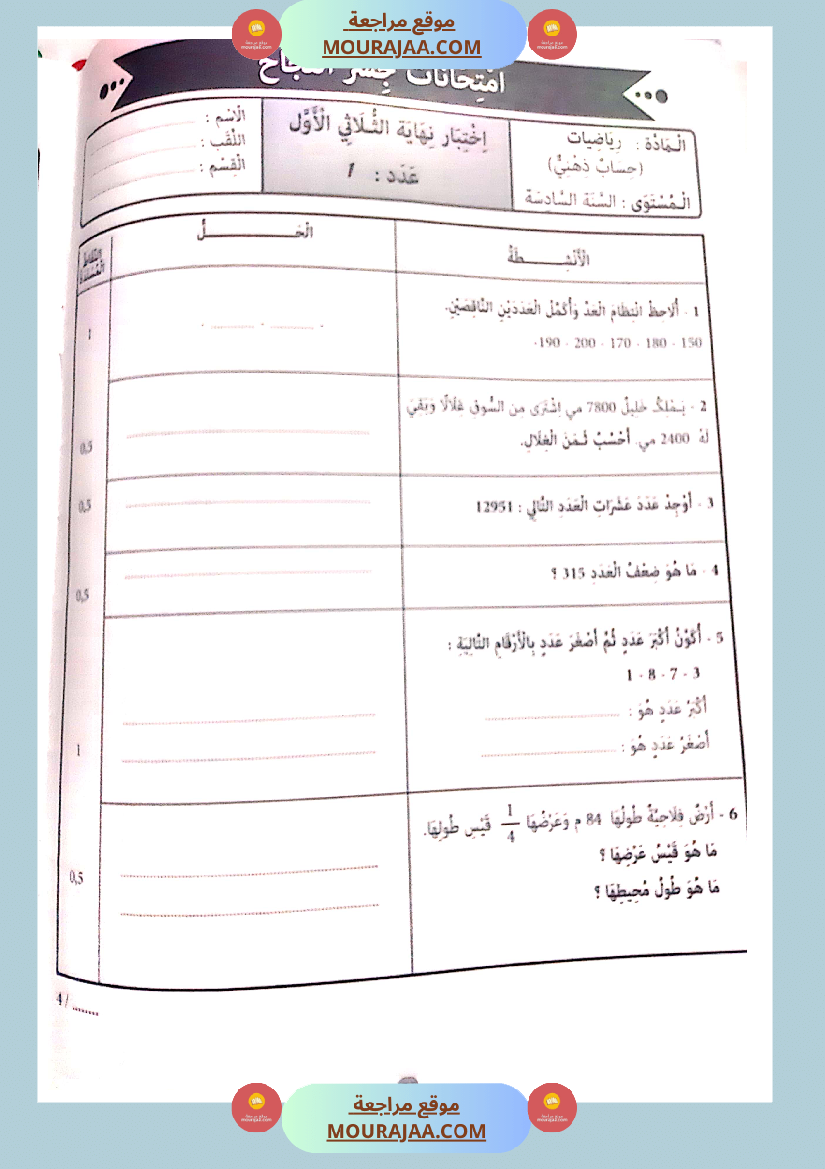 موقع مراجعة
MOURAJAA.COM
امْتِحَانَاتُ جِسْر النَّجَاح
الْمَادَّة : رِيَاضِيات
(حِسَابٌ ذِهْنِيٌّ)
الْمُسْتَوَى : السَّنَة السَّادِسَة
اِخْتِبَار نِهَايَة الثُّلَاثِي الْأَوَّل
عَدَد : 1
الْاسْم :
اللَّقَب :
الْقَسْم :
الْأَنْشِـــــطَةُ
الْحَــــــــــــلُّ
1 - أُلَاحِظُ انْتِظَامَ الْعَدِّ وَأُكْمِلُ الْعَدَدَيْنِ النَّاقِصَيْنِ.
150 - 180 - 170 - 200 - 190-
- ............ - ............ -
1
2 - يَـمْلِكُ خَلِيلُ 7800 مي اِشْتَرَى مِن السُّوقِ غِلَالًا وَبَقِيَ
لَهُ 2400 مي. أَحْسُبُ ثَـمَنَ الْغِلَالِ.
0,5
3 - أُوْجِدُ عَدَدَ عَشَرَاتِ الْعَدَدِ التَّالِي : 12951
0,5
4 - مَا هُوَ ضِعْفُ الْعَدَدِ 315 ؟
0,5
5 - أُكَوِّنُ أَكْبَرَ عَدَدٍ ثُمَّ أَصْغَرَ عَدَدٍ بِالْأَرْقَامِ التَّالِيَةِ :
3 - 7 - 8 - 1
أَكْبَرُ عَدَدٍ هُوَ : ............
أَصْغَرُ عَدَدٍ هُوَ : ............
1
6 - أَرْضٌ فِلَاحِيَّةٌ طُولُهَا 84 م وَعَرْضُهَا 1/4 قَيْسِ طُولِهَا.
مَا هُوَ قَيْسُ عَرْضِهَا ؟
مَا هُوَ طُولُ مُحِيطِهَا ؟
0,5
4 / ........
موقع مراجعة
MOURAJAA.COM